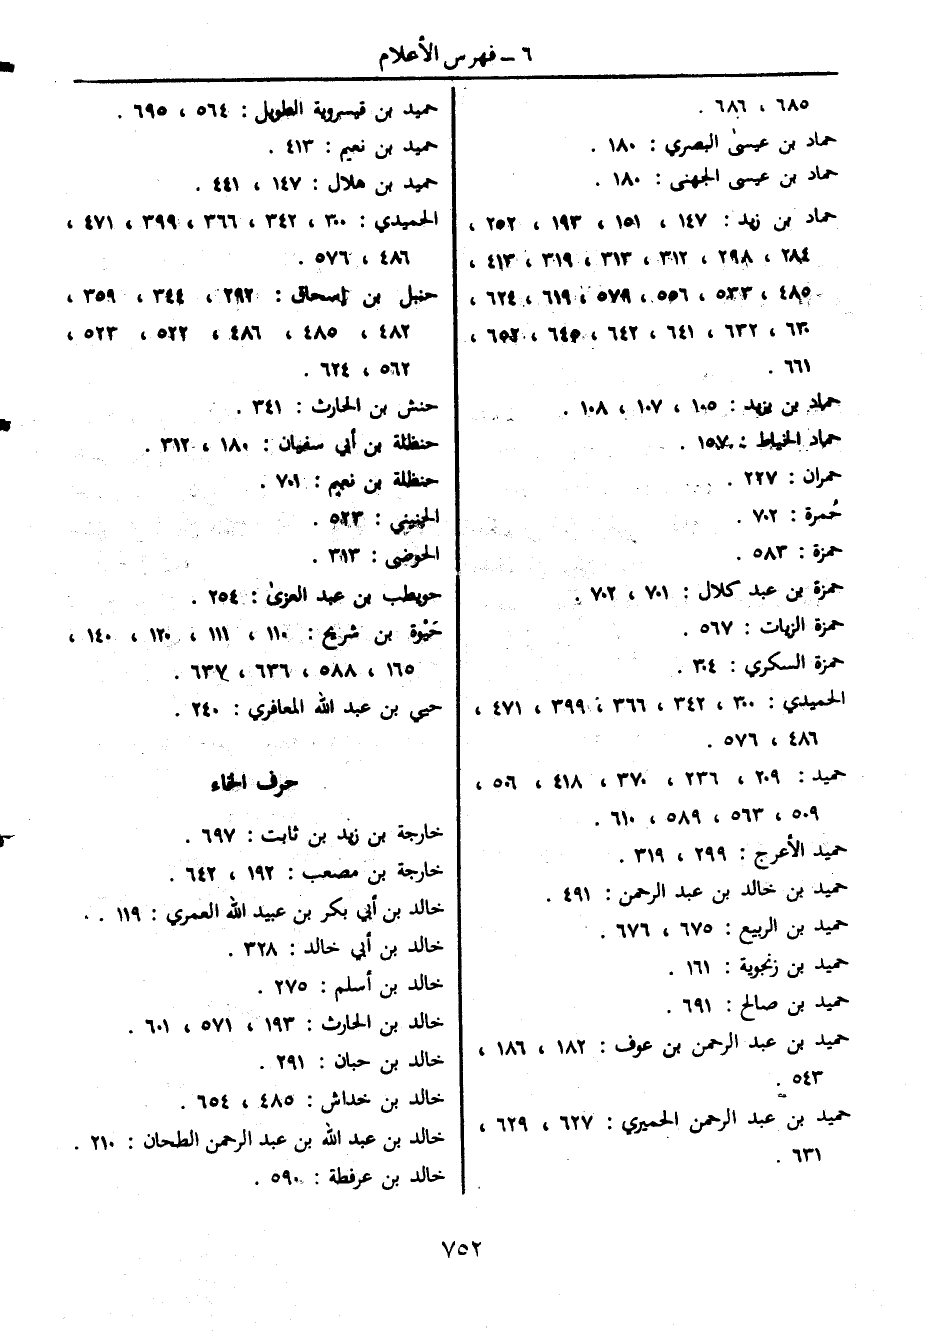 ٦ ــ فهرس الأعلام
٦٨٥ ، ٦٨٦ .
حماد بن عيسىٰ البصري : ١٨٠ .
حماد بن عيسى الجهنى : ١٨٠ .
حماد بن زيد : ١٤٧ ، ١٥١ ، ١٩٣ ، ٢٥٢ ،
٢٨٤ ، ٢٩٨ ، ٣١٢ ، ٣١٣ ، ٣١٩ ، ٤١٣ ،
٤٨٥ ، ٥٣٣ ، ٥٥٦ ، ٥٧٩ ، ٦١٩ ، ٦٢٤ ،
٦٣٠ ، ٦٣٢ ، ٦٤١ ، ٦٤٢ ، ٦٤٥ ، ٦٥٢ ،
٦٦١ .
حماد بن يزيد : ١٠٥ ، ١٠٧ ، ١٠٨ .
حماد الخياط : ١٥٧ .
حمران : ٢٢٧ .
حُمرة : ٧٠٢ .
حمزة : ٥٨٣ .
حمزة بن عبد كلال : ٧٠١ ، ٧٠٢ .
حمزة الزيات : ٥٦٧ .
حمزة السكري : ٣٠٤ .
الحميدي : ٣٠٠ ، ٣٤٢ ، ٣٦٦ ، ٣٩٩ ، ٤٧١ ،
٤٨٦ ، ٥٧٦ .
حميد : ٢٠٩ ، ٢٣٦ ، ٣٧٠ ، ٤١٨ ، ٥٠٦ ،
٥٠٩ ، ٥٦٣ ، ٥٨٩ ، ٦١٠ .
حميد الأعرج : ٢٩٩ ، ٣١٩ .
حميد بن خالد بن عبد الرحمن : ٤٩١ .
حميد بن الربيع : ٦٧٥ ، ٦٧٦ .
حميد بن زنجوية : ١٦١ .
حميد بن صالح : ٦٩١ .
حميد بن عبد الرحمن بن عوف : ١٨٢ ، ١٨٦ ،
٥٤٣ .
حميد بن عبد الرحمن الحميري : ٦٢٧ ، ٦٢٩ ،
٦٣١ .
حميد بن قيسروية الطويل : ٥٦٤ ، ٦٩٥ .
حميد بن نعيم : ٤١٣ .
حميد بن هلال : ١٤٧ ، ٤٤١ .
الحميدي : ٣٠٠ ، ٣٤٢ ، ٣٦٦ ، ٣٩٩ ، ٤٧١ ،
٤٨٦ ، ٥٧٦ .
حنبل بن إسحاق : ٢٩٢ ، ٣٤٤ ، ٣٥٩ ،
٤٨٢ ، ٤٨٥ ، ٤٨٦ ، ٥٢٢ ، ٥٢٣ ،
٥٦٢ ، ٦٢٤ .
حنش بن الحارث : ٣٤١ .
حنظلة بن أبي سفيان : ١٨٠ ، ٣١٢ .
حنظلة بن نعيم : ٧٠١ .
الحنيني : ٥٢٣ .
الحوضى : ٣١٣ .
حويطب بن عبد العزىٰ : ٢٥٤ .
حَيْوة بن شريح : ١١٠ ، ١١١ ، ١٢٠ ، ١٤٠ ،
١٦٥ ، ٥٨٨ ، ٦٣٦ ، ٦٣٧ .
حيي بن عبد الله المعافري : ٢٤٠ .
حرف الخاء
خارجة بن زيد بن ثابت : ٦٩٧ .
خارجة بن مصعب : ١٩٢ ، ٦٤٢ .
خالد بن أبي بكر بن عبيد الله العمري : ١١٩ .
خالد بن أبي خالد : ٣٢٨ .
خالد بن أسلم : ٢٧٥ .
خالد بن الحارث : ١٩٣ ، ٥٧١ ، ٦٠١ .
خالد بن حبان : ٢٩١ .
خالد بن خداش : ٤٨٥ ، ٦٥٤ .
خالد بن عبد الله بن عبد الرحمن الطحان : ٢١٠ .
خالد بن عرفطة : ٥٩٠ .
٧٥٢